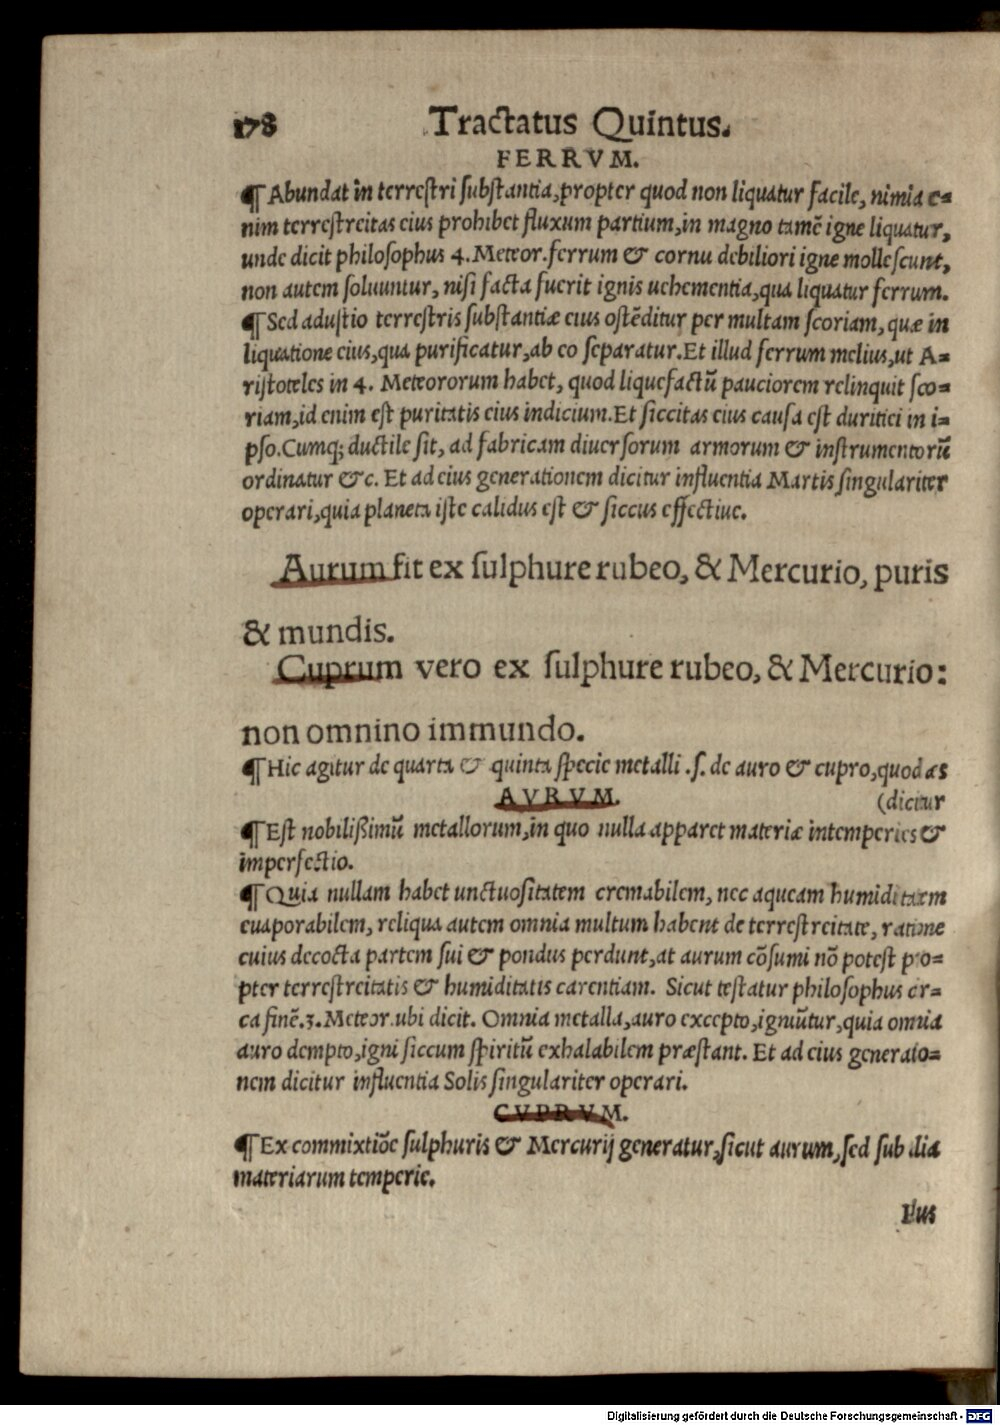 178 Tractatus Quintus.
FERRVM.
¶ Abundat in terrestri substantia, propter quod non liquatur facile, nimia e=
nim terrestreitas eius prohibet fluxum partium, in magno tamē igne liquatur,
unde dicit philosophus 4. Meteor. ferrum & cornu debiliori igne mollescunt,
non autem soluuntur, nisi facta fuerit ignis uehementia, qua liquatur ferrum.
¶ Sed adustio terrestris substantiæ eius ostēditur per multam scoriam, quæ in
liquatione eius, qua purificatur, ab eo separatur. Et illud ferrum melius, ut A=
ristoteles in 4. Meteororum habet, quod liquefactū pauciorem relinquit sco=
riam, id enim est puritatis eius indicium. Et siccitas eius causa est duritiei in i=
pso. Cumq; ductile sit, ad fabricam diuersorum armorum & instrumentorū
ordinatur &c. Et ad eius generationem dicitur influentia Martis singulariter
operari, quia planeta iste calidus est & siccus effectiue.
Aurum fit ex sulphure rubeo, & Mercurio, puris
& mundis.
Cuprum vero ex sulphure rubeo, & Mercurio:
non omnino immundo.
¶ Hic agitur de quarta & quinta specie metalli .s. de auro & cupro, quod æs
AVRVM. (dicitur
¶ Est nobilißimū metallorum, in quo nulla apparet materiæ intemperies &
imperfectio.
¶ Quia nullam habet unctuositatem cremabilem, nec aqueam humiditatem
euaporabilem, reliqua autem omnia multum habent de terrestreitate, ratione
cuius decocta partem sui & pondus perdunt, at aurum cōsumi nō potest pro=
pter terrestreitatis & humiditatis carentiam. Sicut testatur philosophus cir=
ca finē .3. Meteor. ubi dicit. Omnia metalla, auro excepto, igniūtur, quia omnia
auro dempto, igni siccum spiritū exhalabilem præstant. Et ad eius generatio=
nem dicitur influentia Solis singulariter operari.
CVPRVM.
¶ Ex commixtiōe sulphuris & Mercurij generatur, sicut aurum, sed sub alia
materiarum temperie.